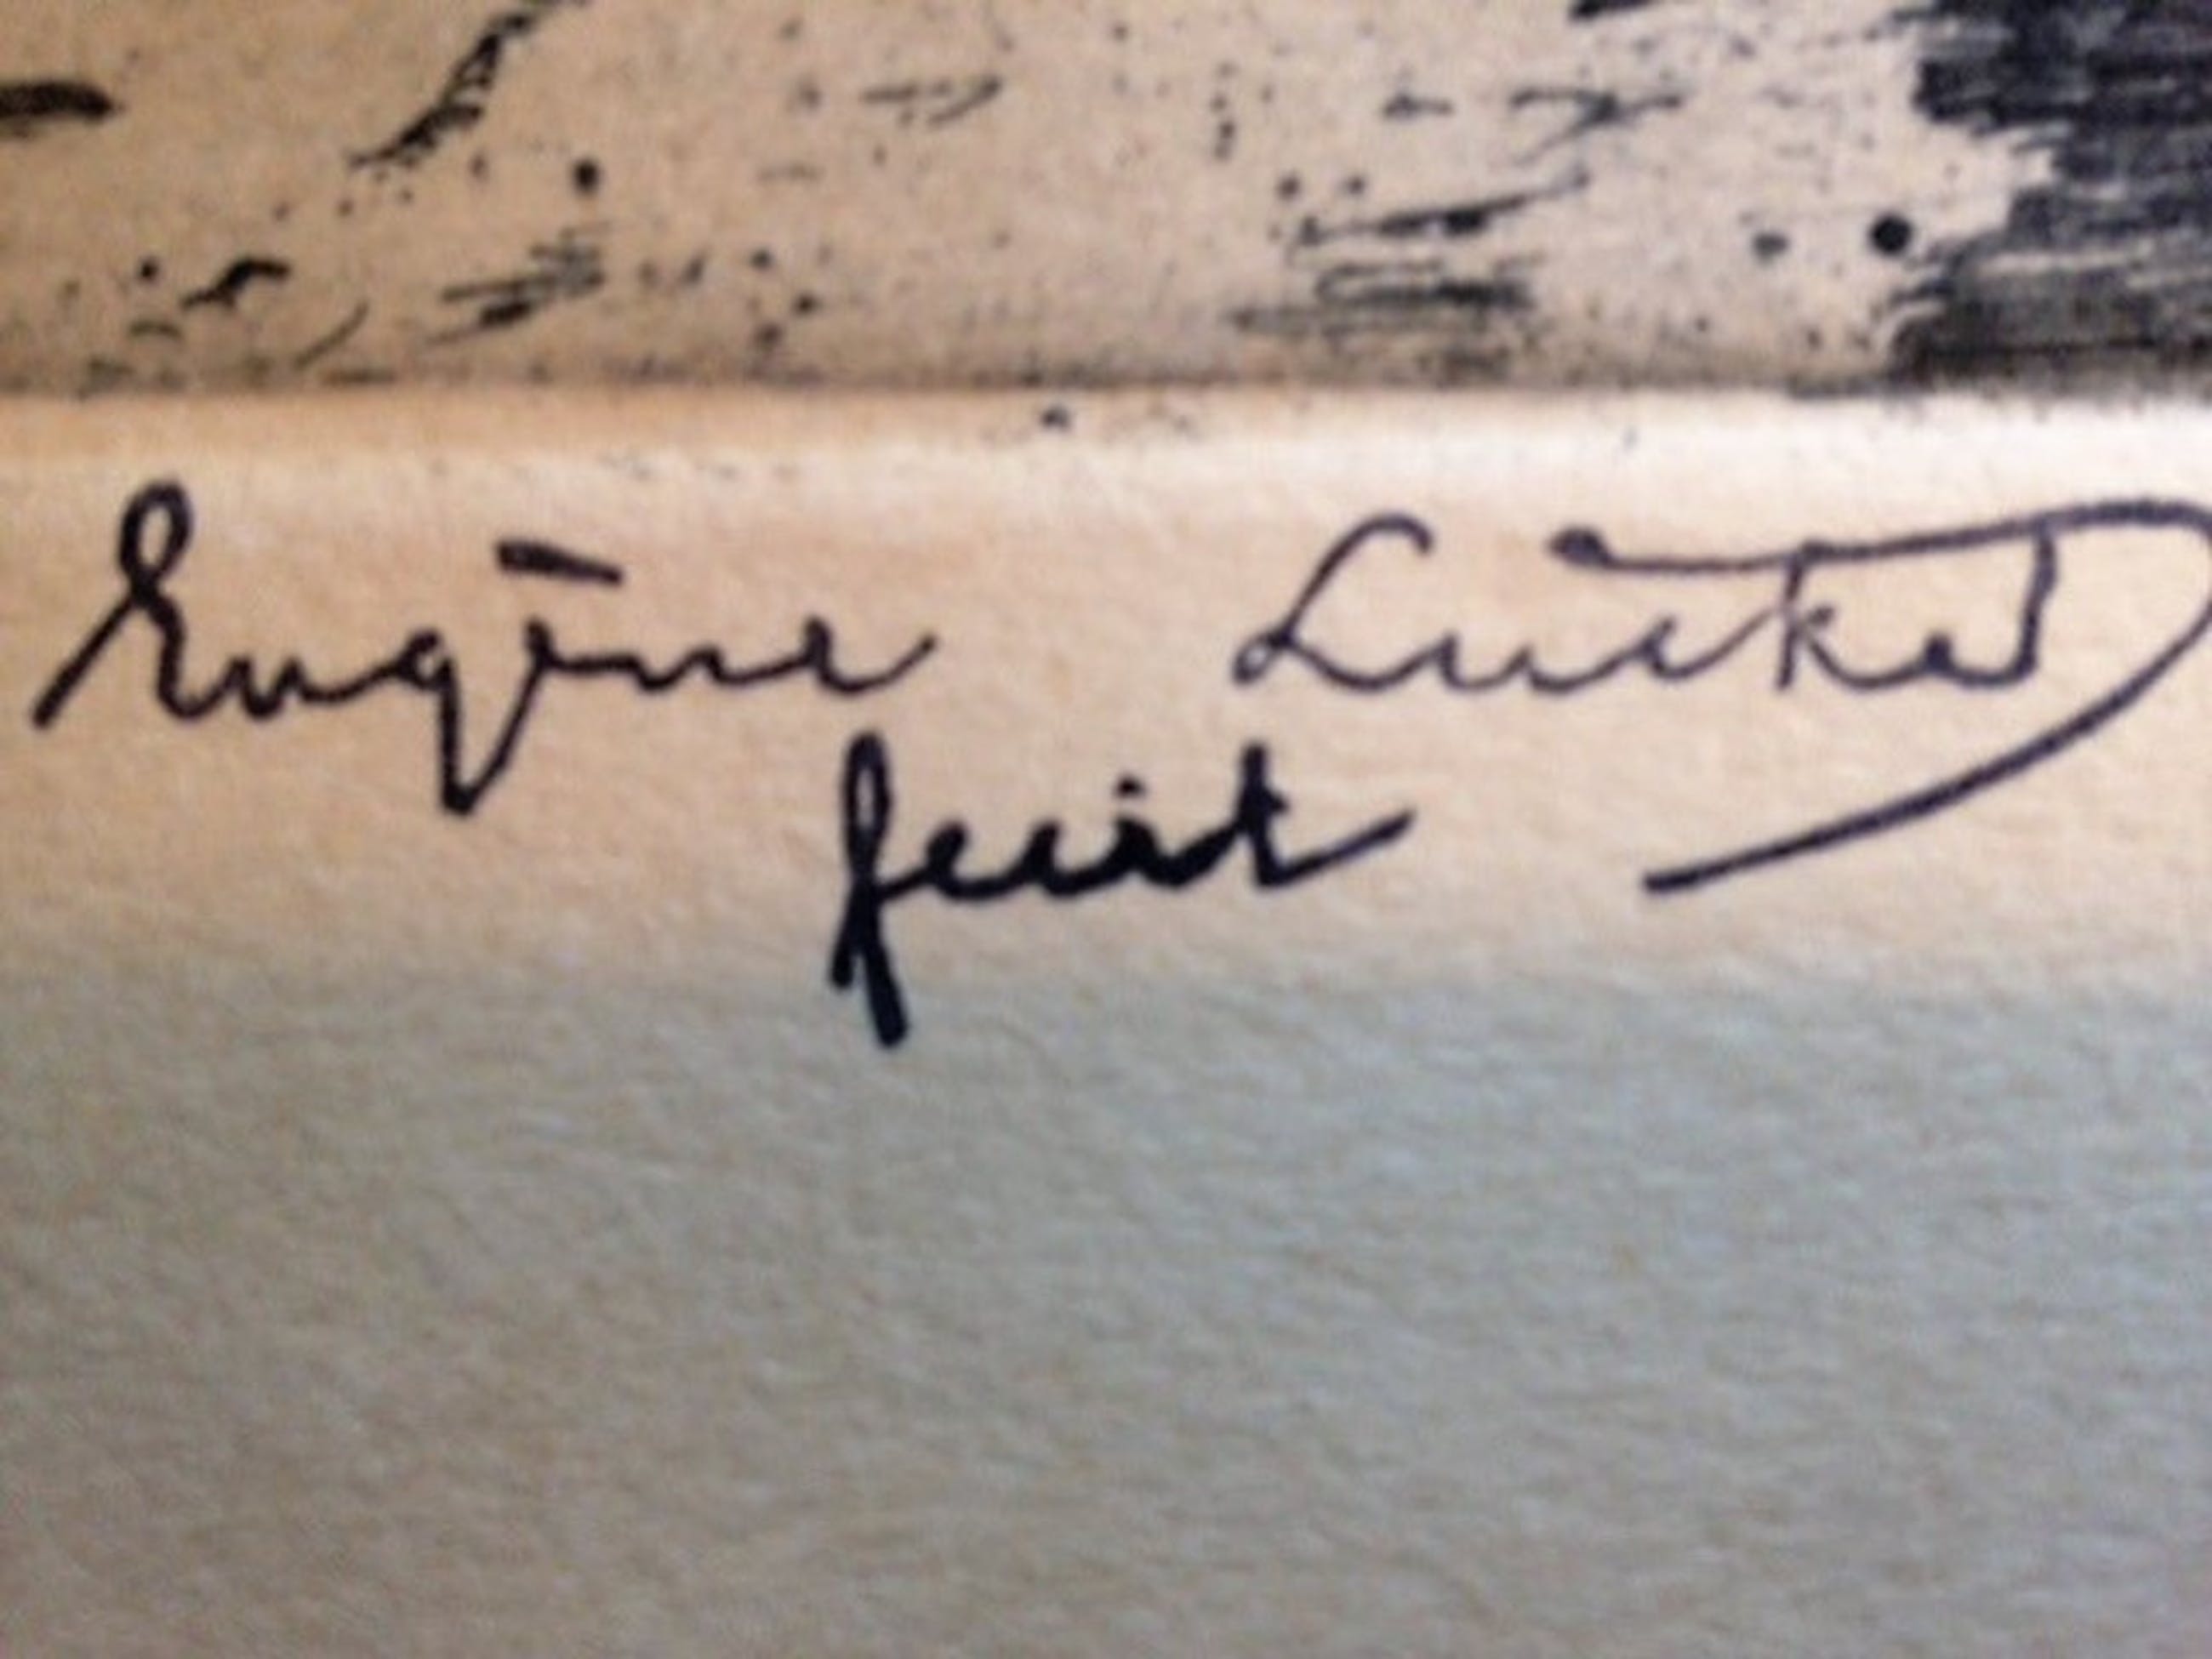 Eugène Lucker
fecit